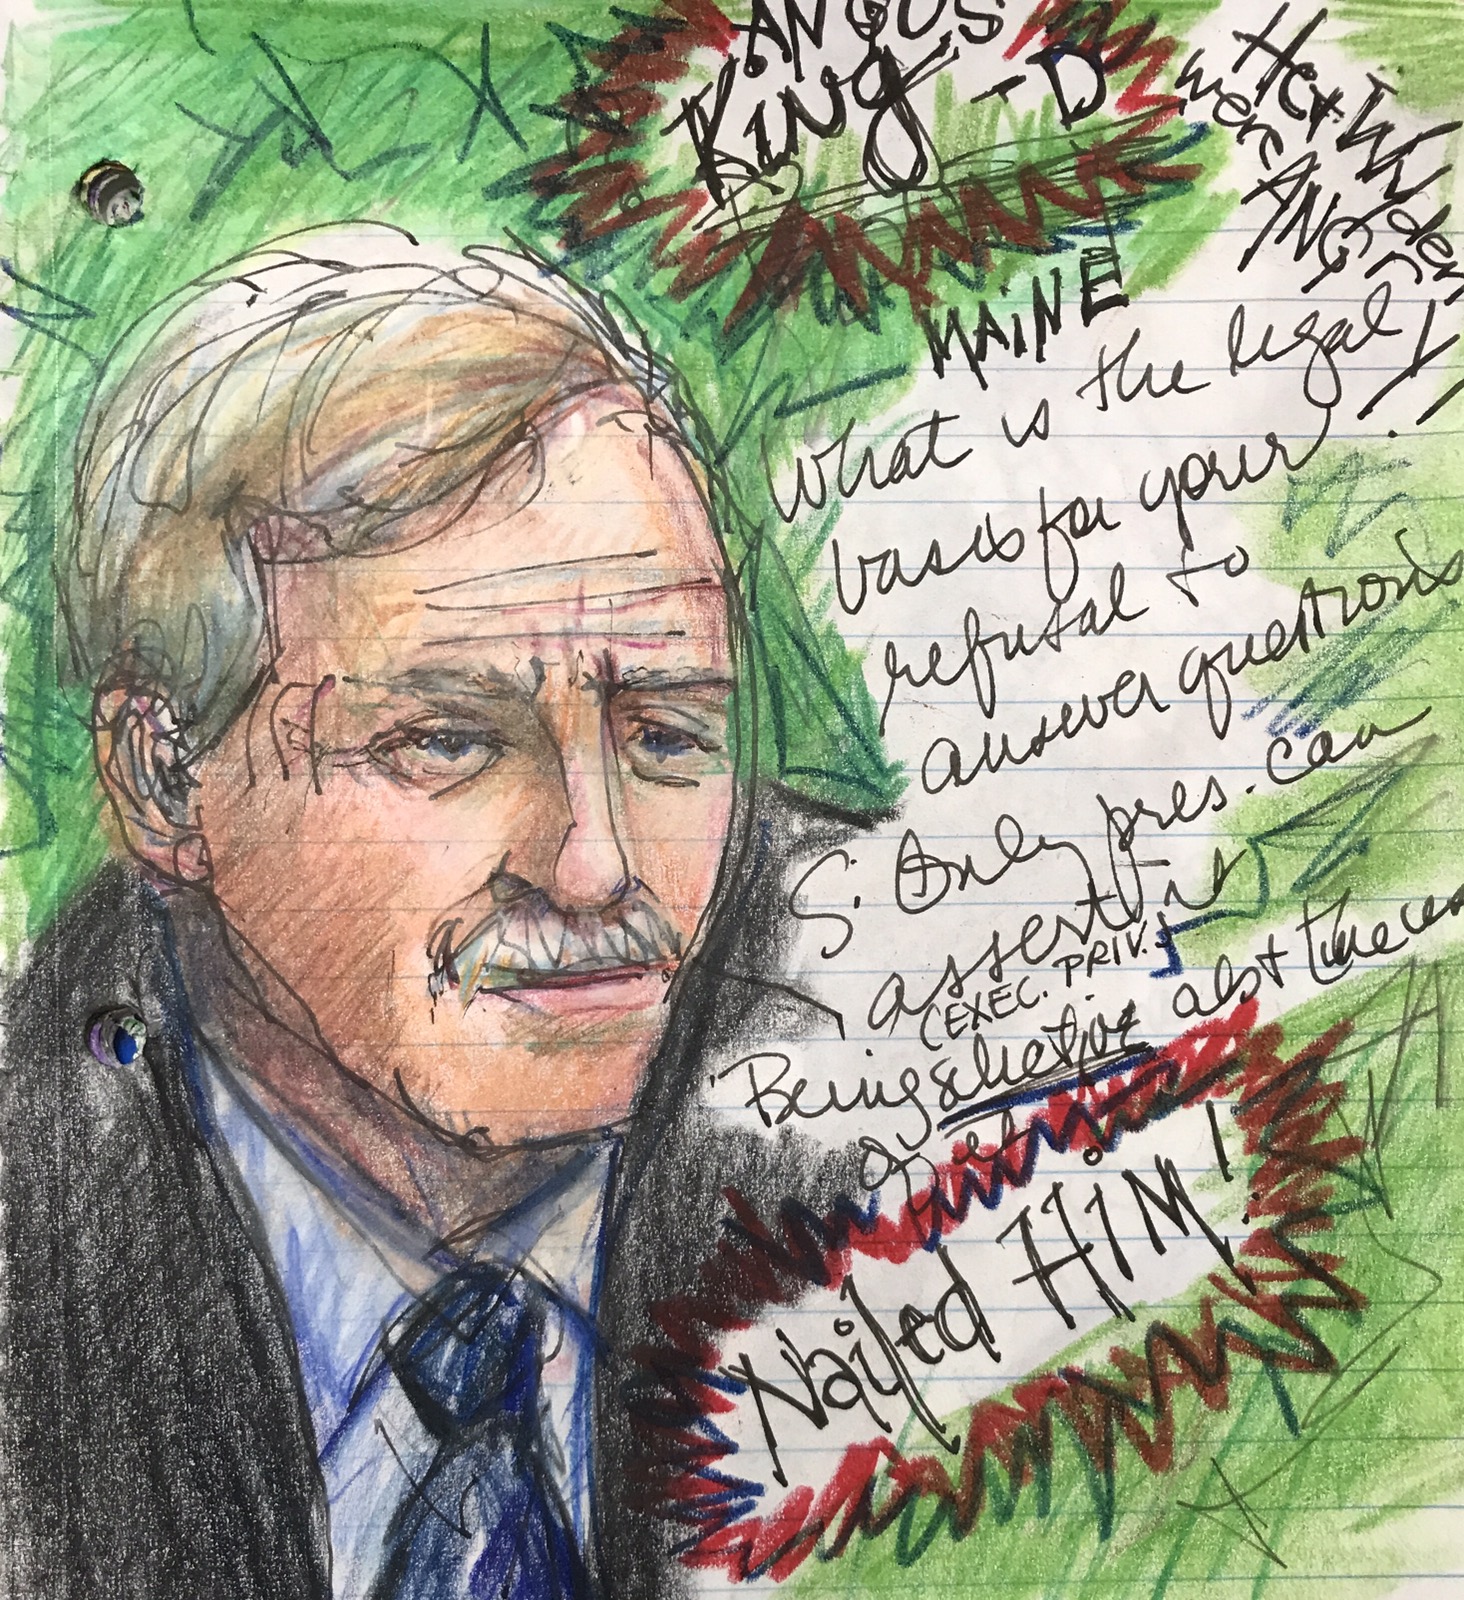 ANGUS
King - D
MAiNE
He + Wyden
were ANGRY!!
What is the legal
basis for your
refusal to
answer questions
S: Only pres. can
assert it
(EXEC. PRIV.)
Being selective abt the use
of it
Nailed HiM!